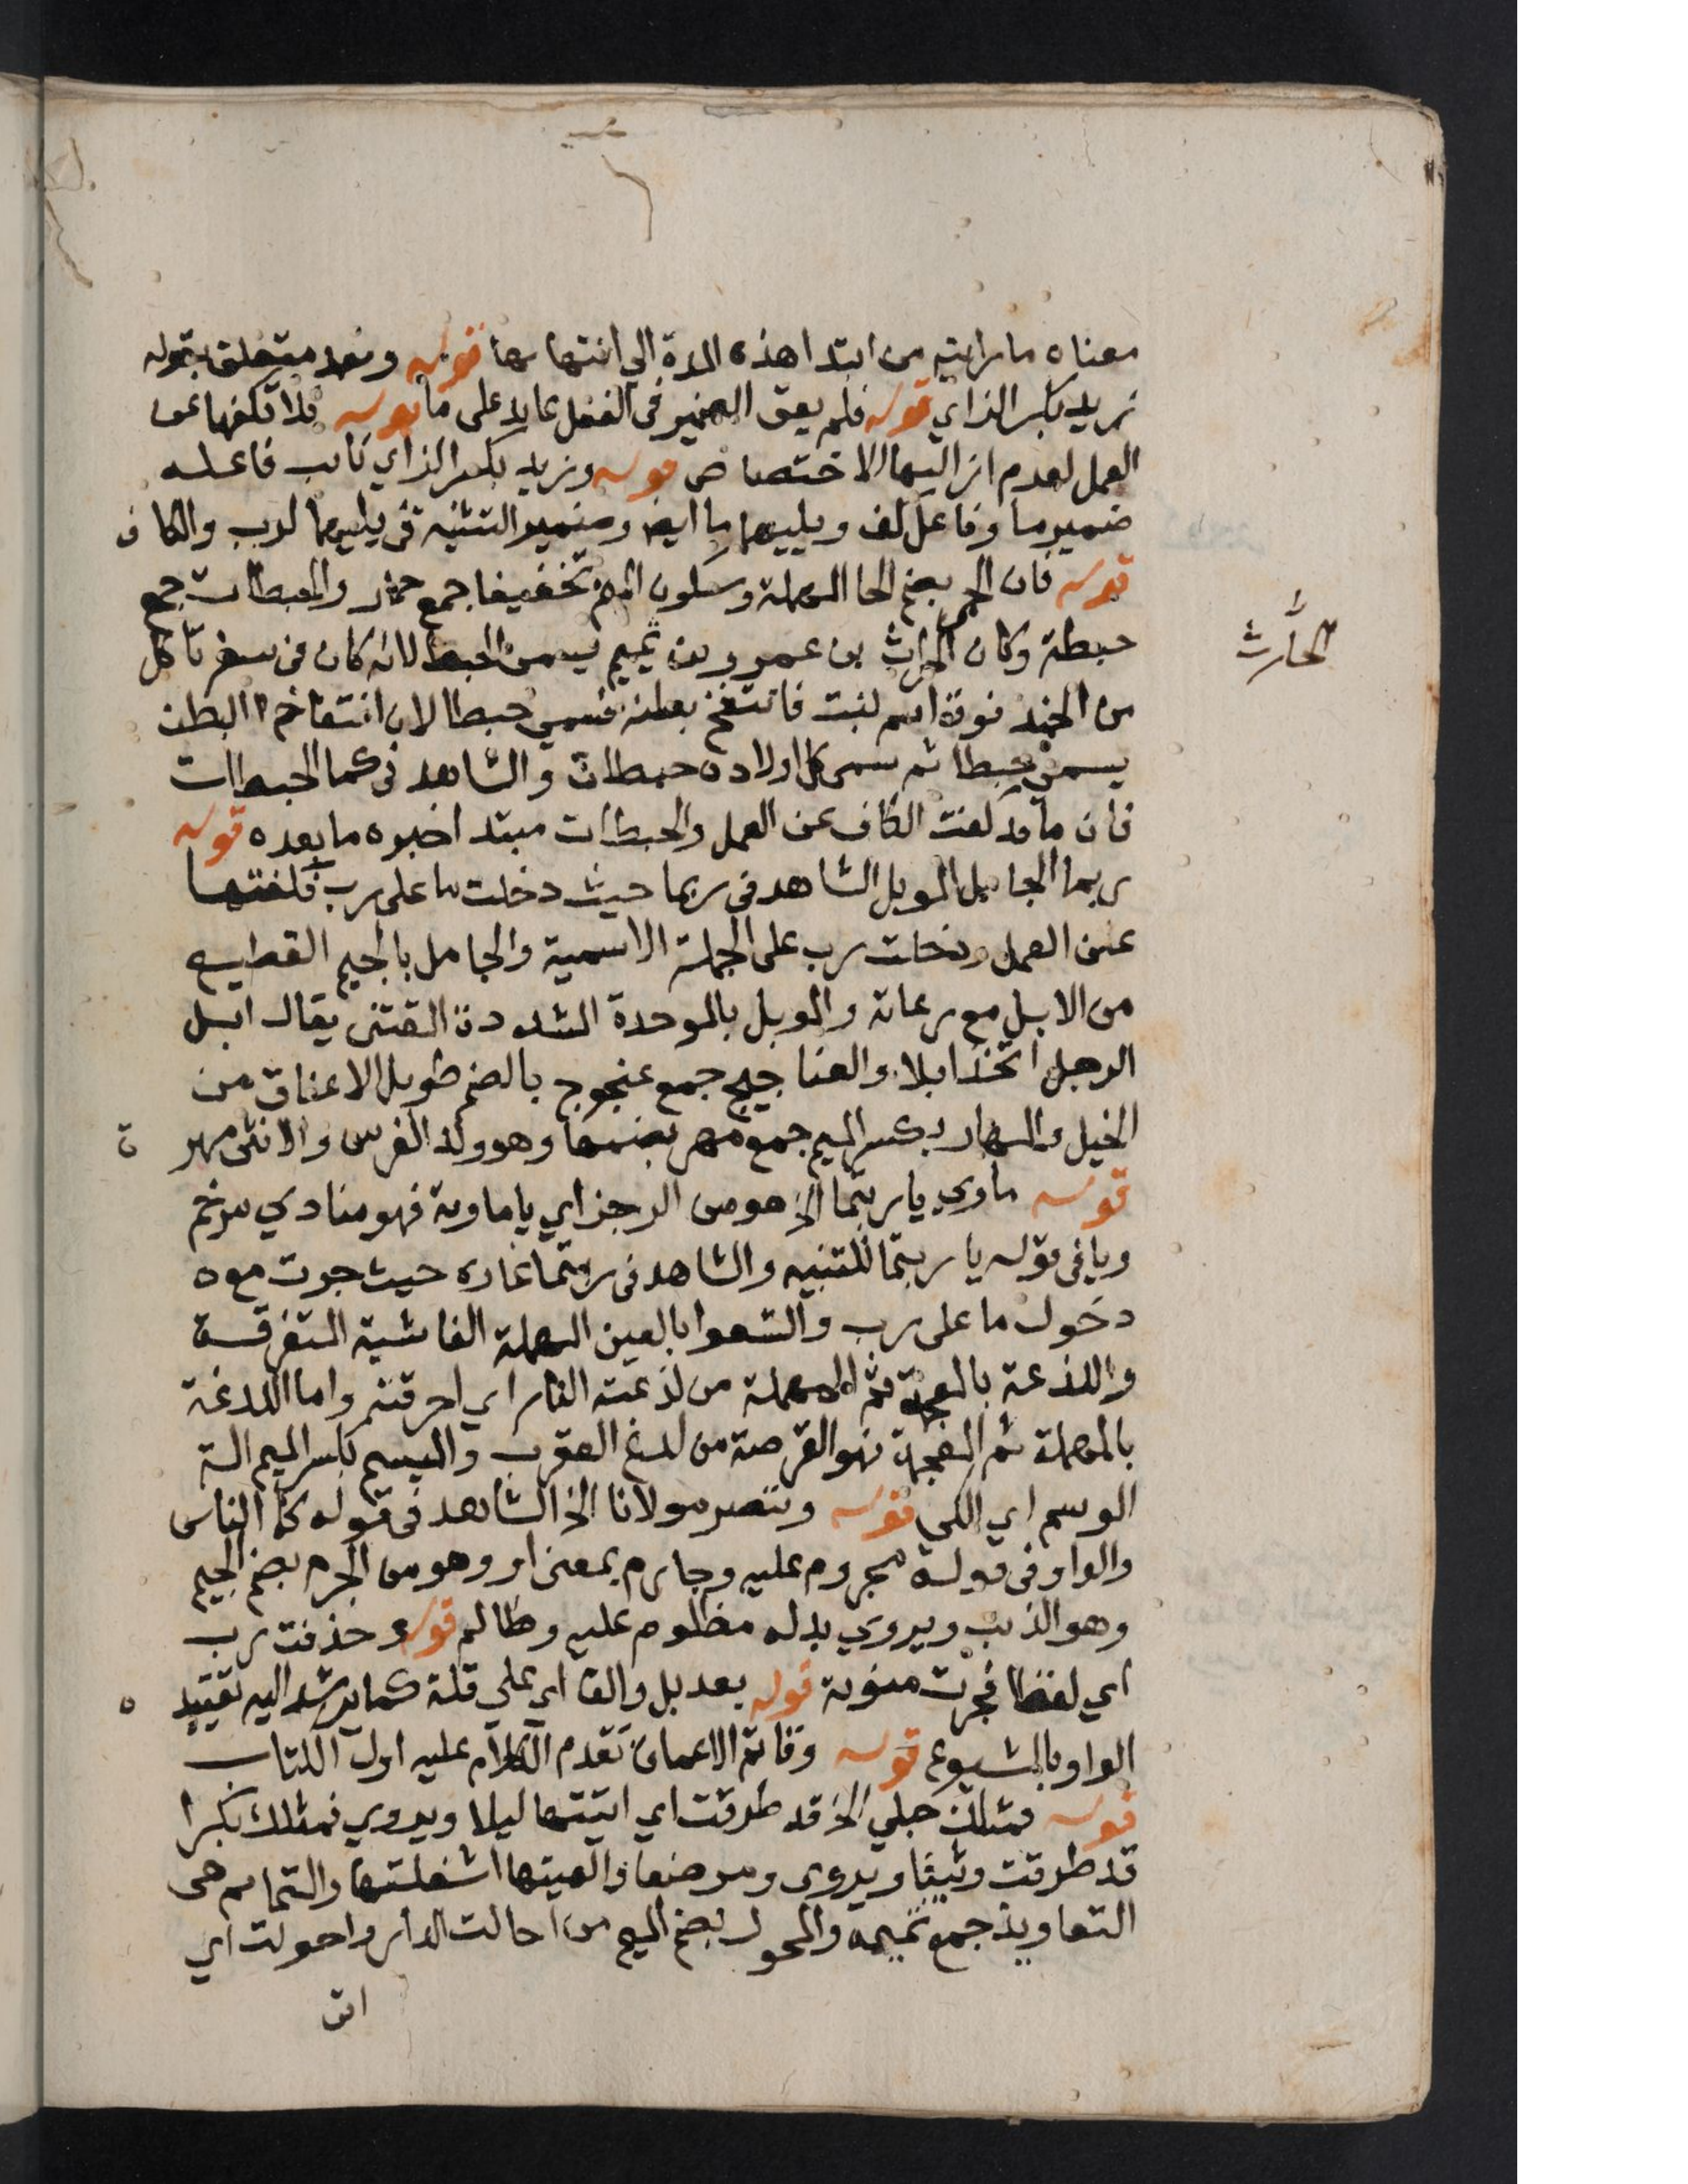 معناه ما رايته من ابتدا هذه المدة الي انتهايها قوله وبعد متعلق بقوله
زيد بكسر الزاي قوله فلم يعق الضمير في الفعل عايد على ما قوله فلا تكفهما عن
العمل لعدم ازالتها الاختصاص قوله وزيد بكسر الزاي نايب فاعله
ضمير ما وفاعل كف ويليهما ما ايضا وضمير التثنية في يليهما لرب والكاف
قوله فان الحمر بضم الحا المهملة وسكون الميم تخفيفا جمع حمار والحبطات جمع
حبطة وكان الحارث بن عمرو بن تميم يسمى الحبط لانه كان في سفر فاكل
الحارث
من الجند فوقة اسم لنبت فانتفخ بطنه فسمي حبطا لان انتفاخ البطن
يسمى حبطا ثم سمى كل اولاده حبطات والشاهد في كما الحبطات
فان ما قد كفت الكاف عن العمل والحبطات مبتدا خبره ما بعده قوله
ربما الجامل الموبل الشاهد في ربما حيث دخلت ما على رب فكفتها
عن العمل ودخلت رب على الجملة الاسمية والجامل بالجيم القطيع
من الابل مع رعاته والموبل بالموحدة المشددة القتنى يقال ابل
الرجل اتخذ ابلا والعناجيج جمع عنجوج بالضم طويل الاعناق من
الخيل والمهار بكسر الميم جمع مهر بضمها وهو ولد الفرس والانثى مهرة
قوله ماوي ياربتما الخ هو من الرجز اي ياماوية فهو منادي مرخم
ويا في قوله يا ربتما للتنبيه والشاهد في ربتما غارة حيث جرت مع
دخول ما على رب والشعوا بالعين المهملة الفاشية المتفرقة
واللذعة بالمعجمة ثم المهملة من لذعته النار اي احرقته واما اللدغة
بالمهملة ثم المعجمة فهو القرصة من لدغ العقرب والميسم بكسر الميم الة
الوسم اي الكي قوله وننصر مولانا الخ الشاهد في قوله كما الناس
والواو في قوله مجروم عليه وجارم بمعنى او وهو من الجرم بضم الجيم
وهو الذنب ويروي بدله مظلوم عليه وظالم قوله وحذفت رب
اي لفظا فجرت منوية قوله بعد بل والفا اي على قلة كما يرشد اليه تقييده
الواو بالشيوع قوله وقاتم الاعماق تقدم الكلام عليه اول الكتاب
قوله فمثلك حبلي الخ قد طرقت اي اتيتها ليلا ويروي فمثلك بكرا
قد طرقت وثيبا ويروى ومرضعا والهيتها اشغلتها والتمايم هي
التعاويذ جمع تميمة والمحول بضم الميم من احالت الدار واحولت اي
اتى